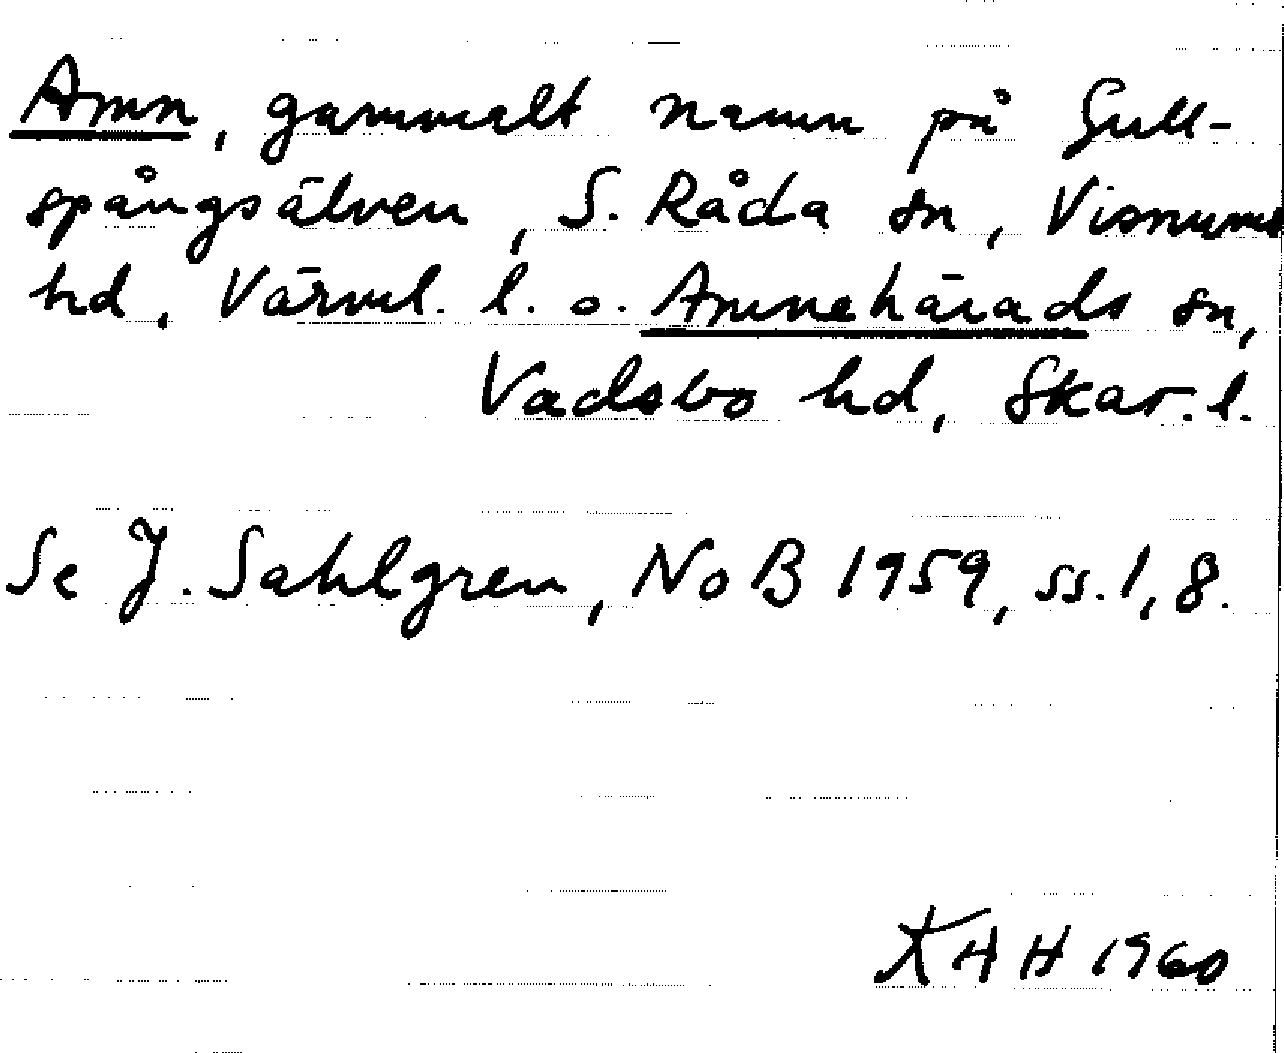 Amn, gammalt namn på Gull-
spångsälven, S. Råda sn, Visnums
hd, Värml. l. o. Amnehärads sn,
Vadsbo hd, Skar. l.
Se J. Sahlgren, NoB 1959, ss. 1, 8.
KAH 1960